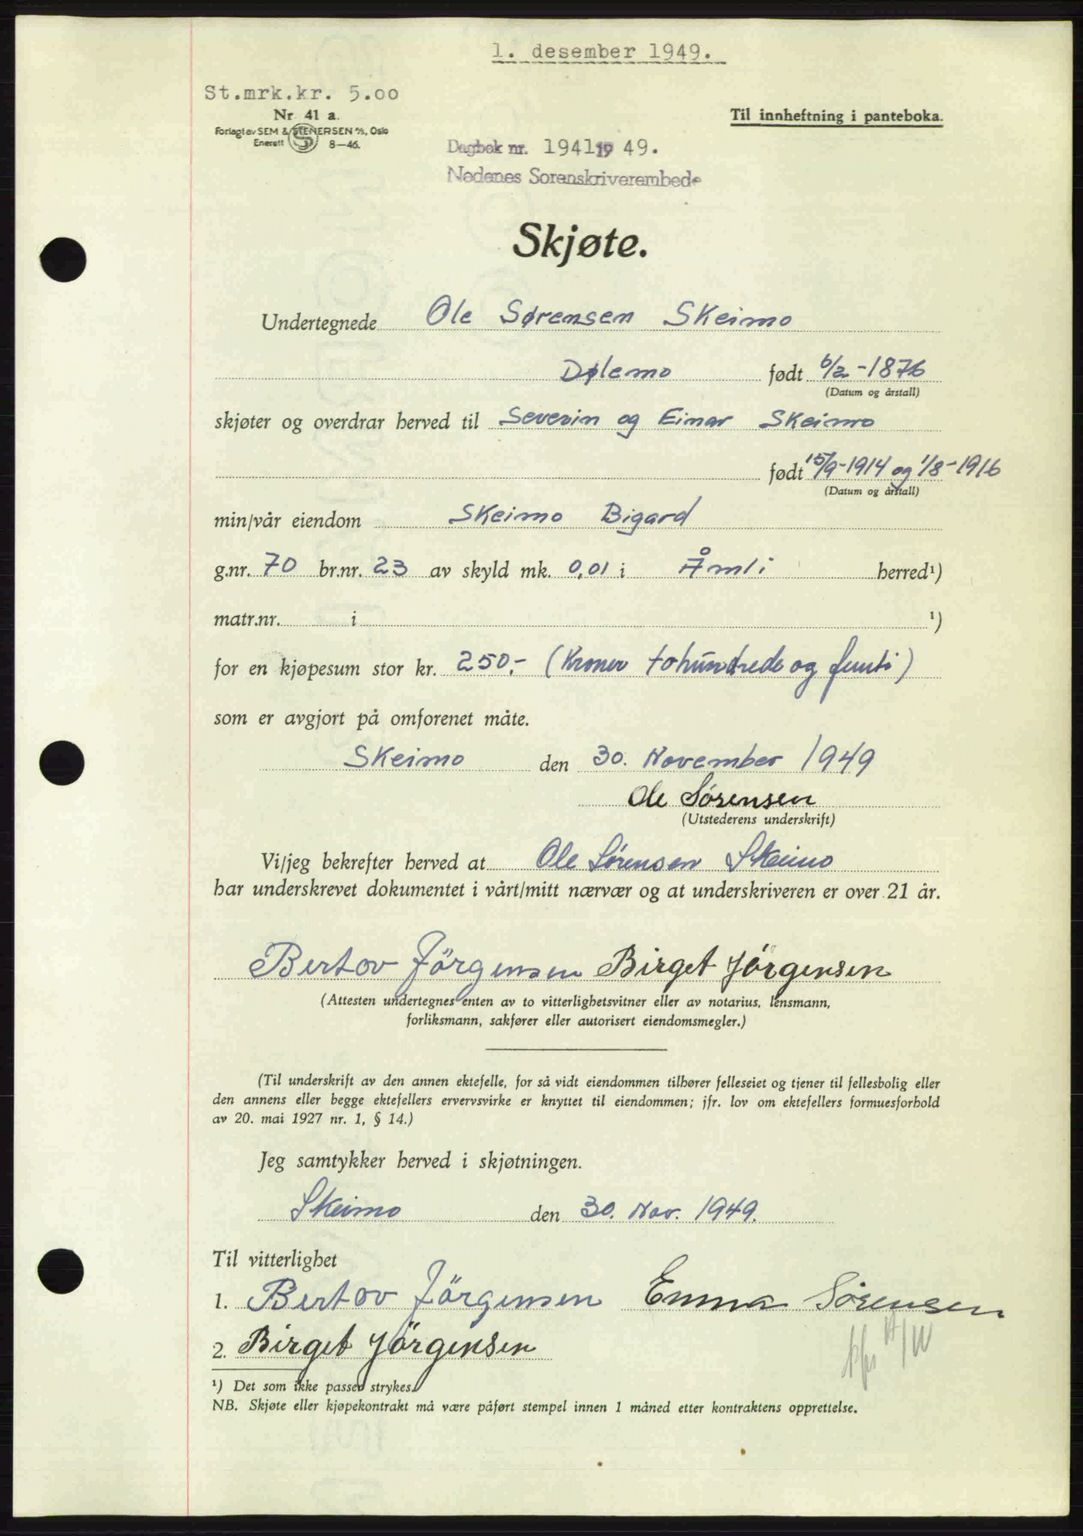 1. desember 1949.
St.mrk.kr. 5.00
Nr. 41 a.
Til innheftning i panteboka.
Forlagt av SEM & STENERSEN A/S, Oslo
Enerett 8—46.
Dagbok nr. 1941 19 49.
Nedenes Sorenskriverembede
Skjøte.
Undertegnede Ole Sørensen Skeimo
Dølemo født 6/2-1876
(Datum og årstall)
skjøter og overdrar herved til Severin og Einar Skeimo
født 15/9-1914 og 1/8-1916
(Datum og årstall)
min/vår eiendom Skeimo Bigard
g.nr. 70 br.nr. 23 av skyld mk. 0,01 i Åmli herred¹)
matr.nr. i ¹)
for en kjøpesum stor kr. 250,- (Kroner tohundrede og femti)
som er avgjort på omforenet måte.
Skeimo den 30. November 1949
Ole Sörensen
(Utstederens underskrift)
Vi/jeg bekrefter herved at Ole Sørensen Skeimo
har underskrevet dokumentet i vårt/mitt nærvær og at underskriveren er over 21 år.
Bertov Jörgensen Birget Jörgensen
(Attesten undertegnes enten av to vitterlighetsvitner eller av notarius, lensmann,
forliksmann, sakfører eller autorisert eiendomsmegler.)
(Til underskrift av den annen ektefelle, for så vidt eiendommen tilhører felleseiet og tjener til fellesbolig eller
den annens eller begge ektefellers ervervsvirke er knyttet til eiendommen; jfr. lov om ektefellers formuesforhold
av 20. mai 1927 nr. 1, § 14.)
Jeg samtykker herved i skjøtningen.
Skeimo den 30. Nov. 1949.
Til vitterlighet
1. Bertov Jörgensen Emma Sörensen
2. Birget Jörgensen
¹) Det som ikke passer strykes.
NB. Skjøte eller kjøpekontrakt må være påført stempel innen 1 måned etter kontraktens opprettelse.